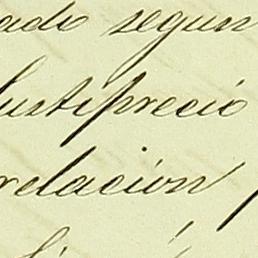 ado segun
Justipreció
relacion